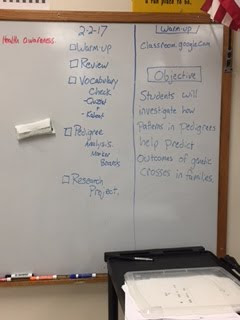 Health awareness
2-2-17
□ Warm-up
□ Review
□ Vocabulary
Check
-Quizlet
+
-Kahoot
□ Pedigree
Analysis
Marker
Boards
□ Research
Project
Warm-up
classroom.google.com
Objective
Students will
investigate how
Patterns in Pedigrees
help predict
Outcomes of genetic
Crosses in families.